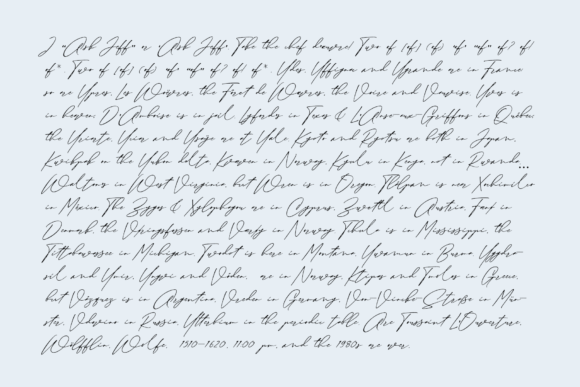 "Ask Jeff" or 'Ask Jeff'. Take the chef d'œuvre! Two of [of] (of) 'of' "of" of? of!
of*. Two of [of] (of) 'of' "of" of? of! of*. Ydes, Yffignac and Ygrande are in France:
so are Ypres, Les Woëvres, the Fôret de Wœvres, the Voire and Vauvise. Yves is
in heaven; D'Amboise is in jail. Lyford's in Texas & L'Anse-aux-Griffons in Québec;
the Yriarte, Yciar and Ysaÿe are at Yale. Kyoto and Ryotsu are both in Japan,
Kwikpak on the Yukon delta, Kvæven in Norway, Kyulu in Kenya, not in Rwanda.…
Walton's in West Virginia, but Wren is in Oregon. Tlálpan is near Xochimilco
in México. The Zygos & Xylophagou are in Cyprus, Zwettl in Austria, Fænø in
Denmark, the Vøringsfossen and Værøy in Norway. Tchula is in Mississippi, the
Tittabawassee in Michigan. Twodot is here in Montana, Ywamun in Burma. Yggdra-
sil and Ymir, Yngvi and Vóden, are in Norway, Ktipas and Tmolos in Greece,
but Vázquez is in Argentina, Vreden in Germany, Von-Vincke-Straße in Mün-
ster, Vdovino in Russia, Ytterbium in the periodic table. Are Toussaint L'Ouverture,
Wölfflin, Wolfe, 1510–1620, 11:00 pm, and the 1980s are over.